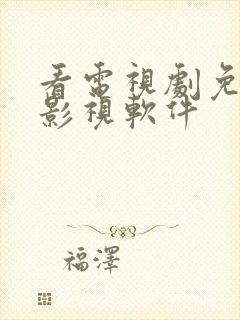 看電視劇免
影視軟件
福澤